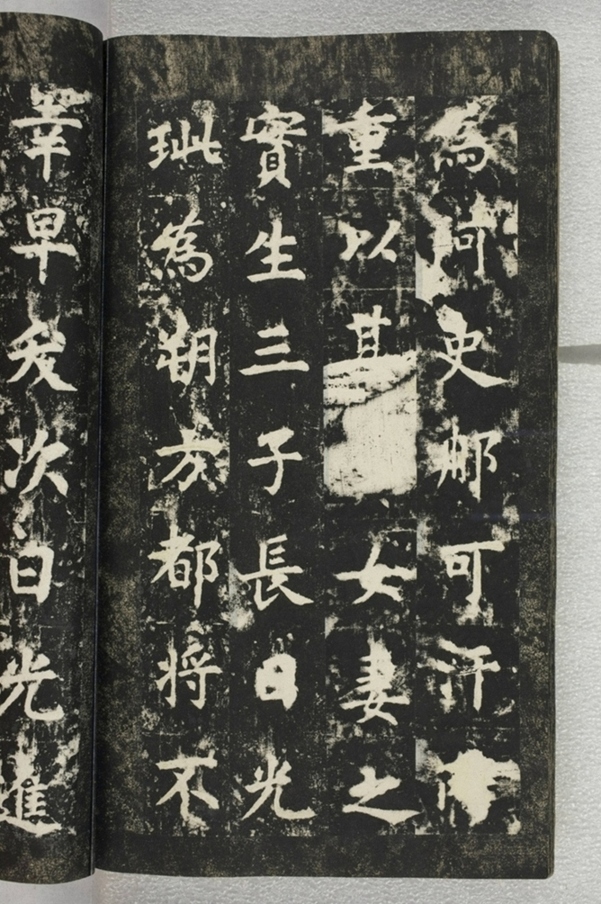 為阿史那可汗
重以其女妻之
實生三子長曰光
玼為朔方都將不
幸早矣次曰光進